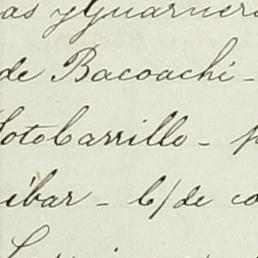 as y Guarnero
de Bacoachi -
Sotocarrillo - p
ibar - C/de co